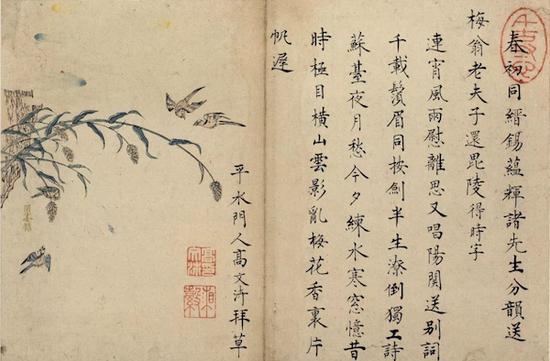 春初同縉錫蘊輝諸先生分韻送
梅翁老夫子還毘陵得時字
連宵風雨慰離思又唱陽關送別詞
千載鬢眉同按劍半生潦倒獨工詩
蘇臺夜月愁今夕練水寒窓憶昔
時極目橫山雲影亂梅花香裏片
帆遲
平水門人高文拜草